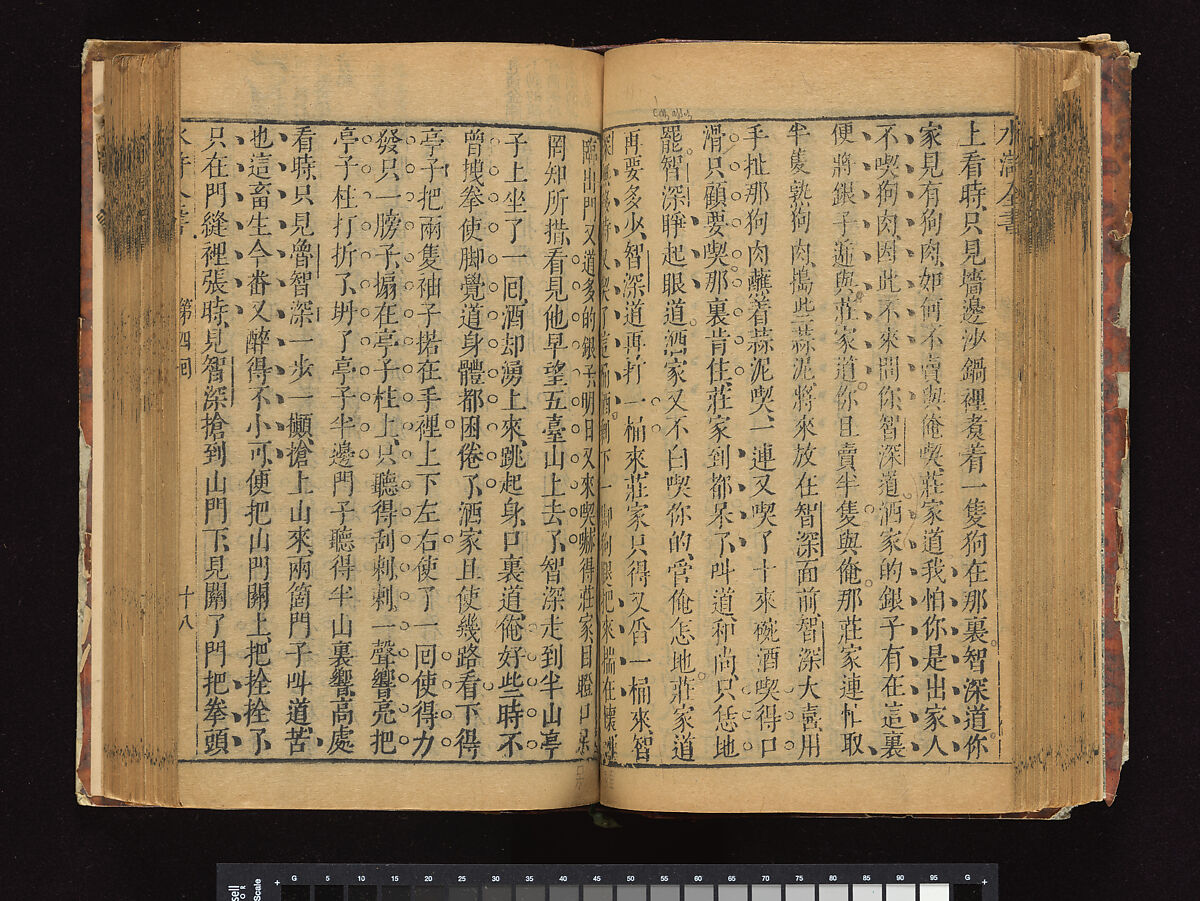 水滸全書
上看時只見墻邊沙鍋裡煮着一隻狗在那裏智深道你
家見有狗肉如何不賣與俺喫莊家道我怕你是出家人
不喫狗肉因此不來問你智深道洒家的銀子有在這裏
便將銀子遞與莊家道你且賣半隻與俺那莊家連忙取
半隻熟狗肉搗些蒜泥將來放在智深面前智深大喜用
手扯那狗肉蘸着蒜泥喫一連又喫了十來碗酒喫得口
滑只顧要喫那裏肯住莊家到都呆了叫道和尚只恁地
罷智深睜起眼道洒家又不白喫你的管俺怎地莊家道
再要多少智深道再打一桶來莊家只得又舀一桶來智
又喫了這桶酒剩下一脚狗腿把來揣在懷裡
臨出門又道多的銀子明日又來喫嚇得莊家目瞪口呆
罔知所措看見他早望五臺山上去了智深走到半山亭
子上坐了一回酒却湧上來跳起身口裏道俺好些時不
曾拽拳使脚覺道身體都困倦了洒家且使幾路看下得
亭子把兩隻袖子掿在手裡上下左右使了一回使得力
發只一膀子搧在亭子柱上只聽得刮剌剌一聲響亮把
亭子柱打折了坍了亭子半邊門子聽得半山裏響高處
看時只見魯智深一步一顛搶上山來兩箇門子叫道苦
也這畜生今番又醉得不小可便把山門關上把拴拴了
只在門縫裡張時見智深搶到山門下見關了門把拳頭
水滸全書
第四回
十八
G 5 10 20 30 40 50 55 60 65 70 75 80 85 90 95 G
Scale